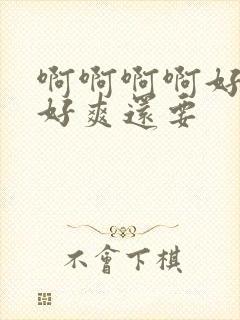 啊啊啊啊好
好爽還要
不會下棋